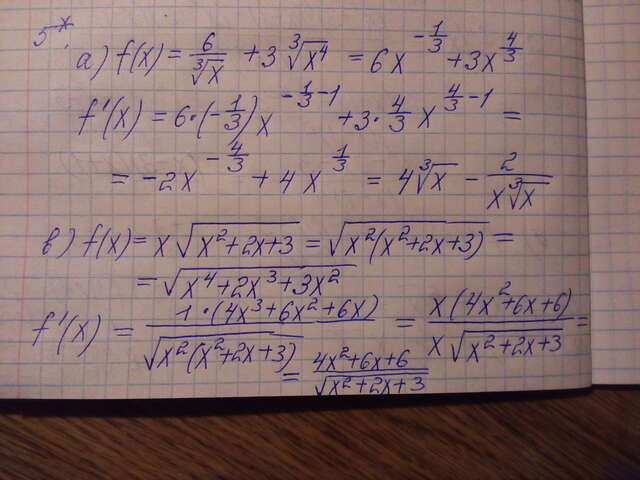 5*.
a) f(x) = 6/∛x + 3∛x⁴ = 6x^(-1/3) + 3x^(4/3)
f'(x) = 6·(-1/3)x^(-1/3-1) + 3·4/3 x^(4/3-1) =
= -2x^(-4/3) + 4x^(1/3) = 4∛x - 2/(x∛x)
b) f(x) = x√(x²+2x+3) = √(x²(x²+2x+3)) =
= √(x⁴+2x³+3x²)
f'(x) = 1·(4x³+6x²+6x)/√(x²(x²+2x+3)) = x(4x²+6x+6)/(x√(x²+2x+3)) =
= (4x²+6x+6)/√(x²+2x+3)